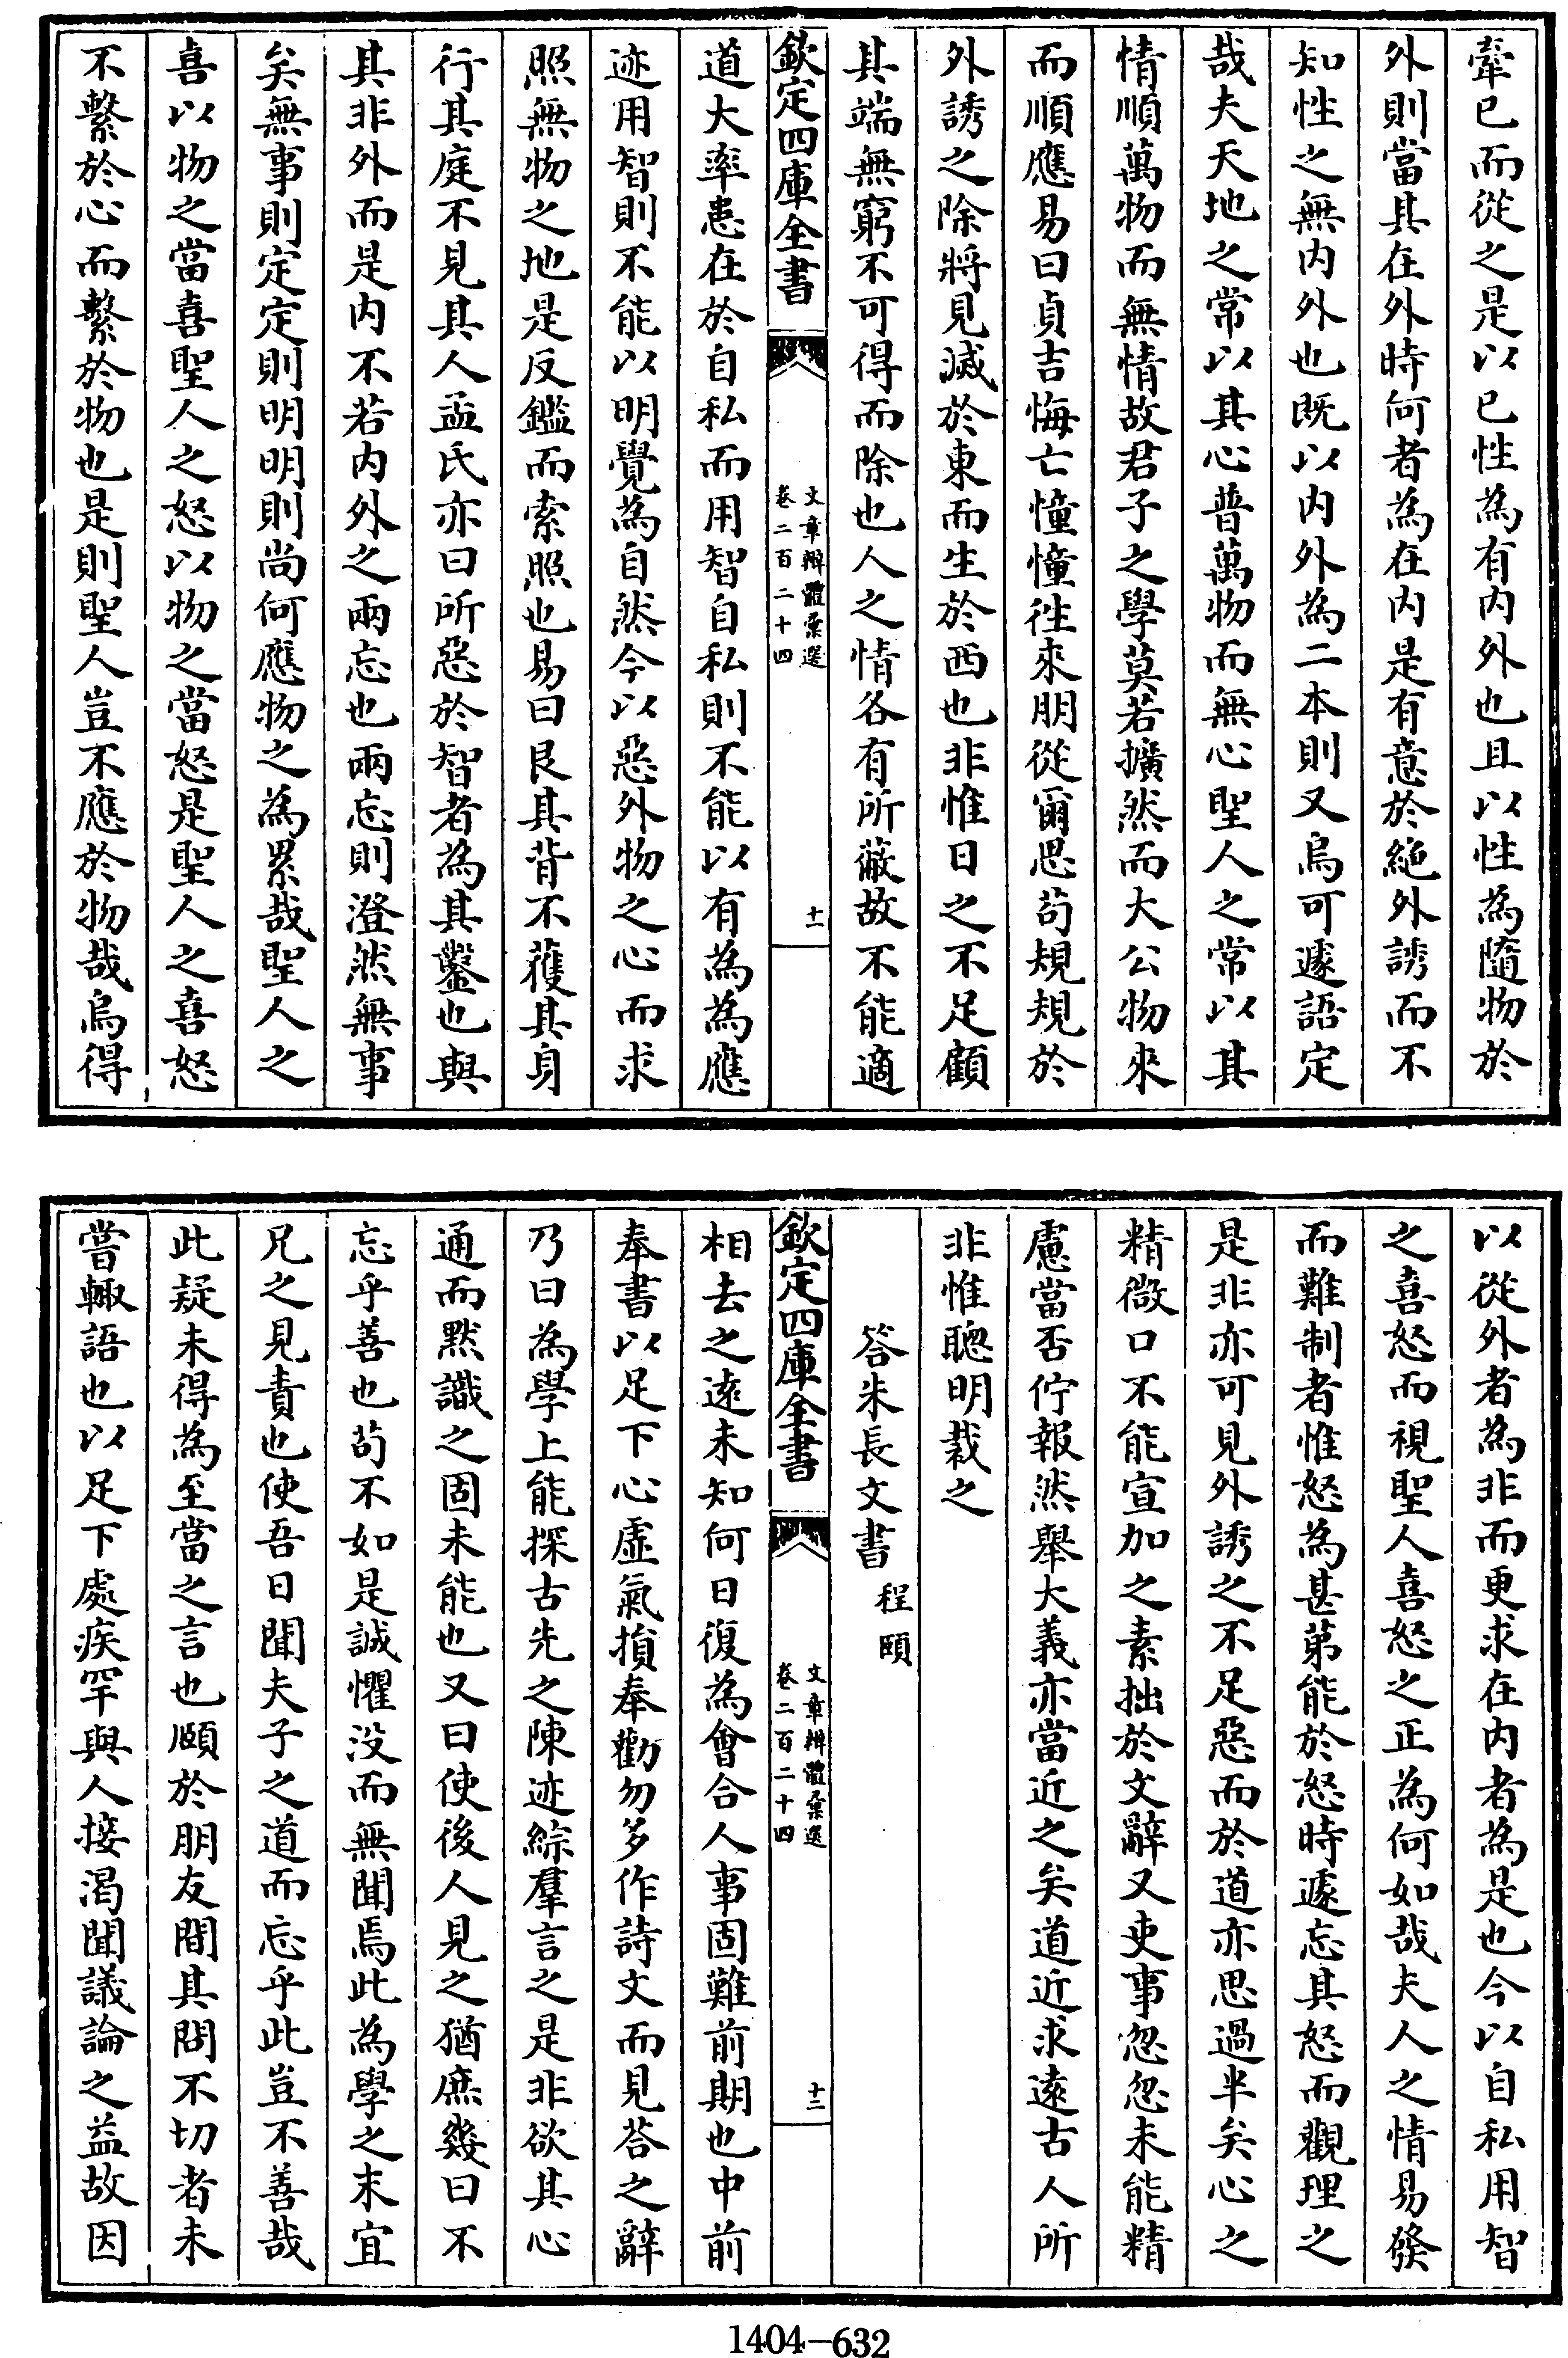 牽已而從之是以已性為有内外也且以性為隨物於
外則當其在外時何者為在内是有意於絶外誘而不
知性之無内外也既以内外為二本則又烏可遽語定
哉夫天地之常以其心普萬物而無心聖人之常以其
情順萬物而無情故君子之學莫若擴然而大公物來
而順應易曰貞吉悔亡憧憧徃來朋從爾思茍規規於
外誘之除將見滅於東而生於西也非惟日之不足顧
其端無窮不可得而除也人之情各有所蔽故不能適
欽定四庫全書
文章辯體彚選
卷二百二十四
十一
道大率患在於自私而用智自私則不能以有為為應
迹用智則不能以明覺為自然今以惡外物之心而求
照無物之地是反鑑而索照也易曰艮其背不獲其身
行其庭不見其人孟氏亦曰所惡於智者為其鑿也與
其非外而是内不若内外之兩忘也兩忘則澄然無事
矣無事則定定則明明則尚何應物之為累哉聖人之
喜以物之當喜聖人之怒以物之當怒是聖人之喜怒
不繫於心而繫於物也是則聖人豈不應於物哉烏得
以從外者為非而更求在内者為是也今以自私用智
之喜怒而視聖人喜怒之正為何如哉夫人之情易發
而難制者惟怒為甚第能於怒時遽忘其怒而觀理之
是非亦可見外誘之不足惡而於道亦思過半矣心之
精微口不能宣加之素拙於文辭又吏事忽忽未能精
慮當否佇報然舉大義亦當近之矣道近求遠古人所
非惟聰明裁之
答朱長文書 程頤
欽定四庫全書
文章辨體彚選
卷二百二十四
十二
相去之逺未知何日復為會合人事固難前期也中前
奉書以足下心虛氣損奉勸勿多作詩文而見荅之辭
乃曰為學上能探古先之陳迹綜羣言之是非欲其心
通而默識之固未能也又曰使後人見之猶庶幾曰不
忘乎善也茍不如是誠懼没而無聞焉此為學之末宜
兄之見責也使吾日聞夫子之道而忘乎此豈不善哉
此疑未得為至當之言也頤於朋友間其問不切者未
嘗輙語也以足下處疾罕與人接渴聞議論之益故因
1404—632